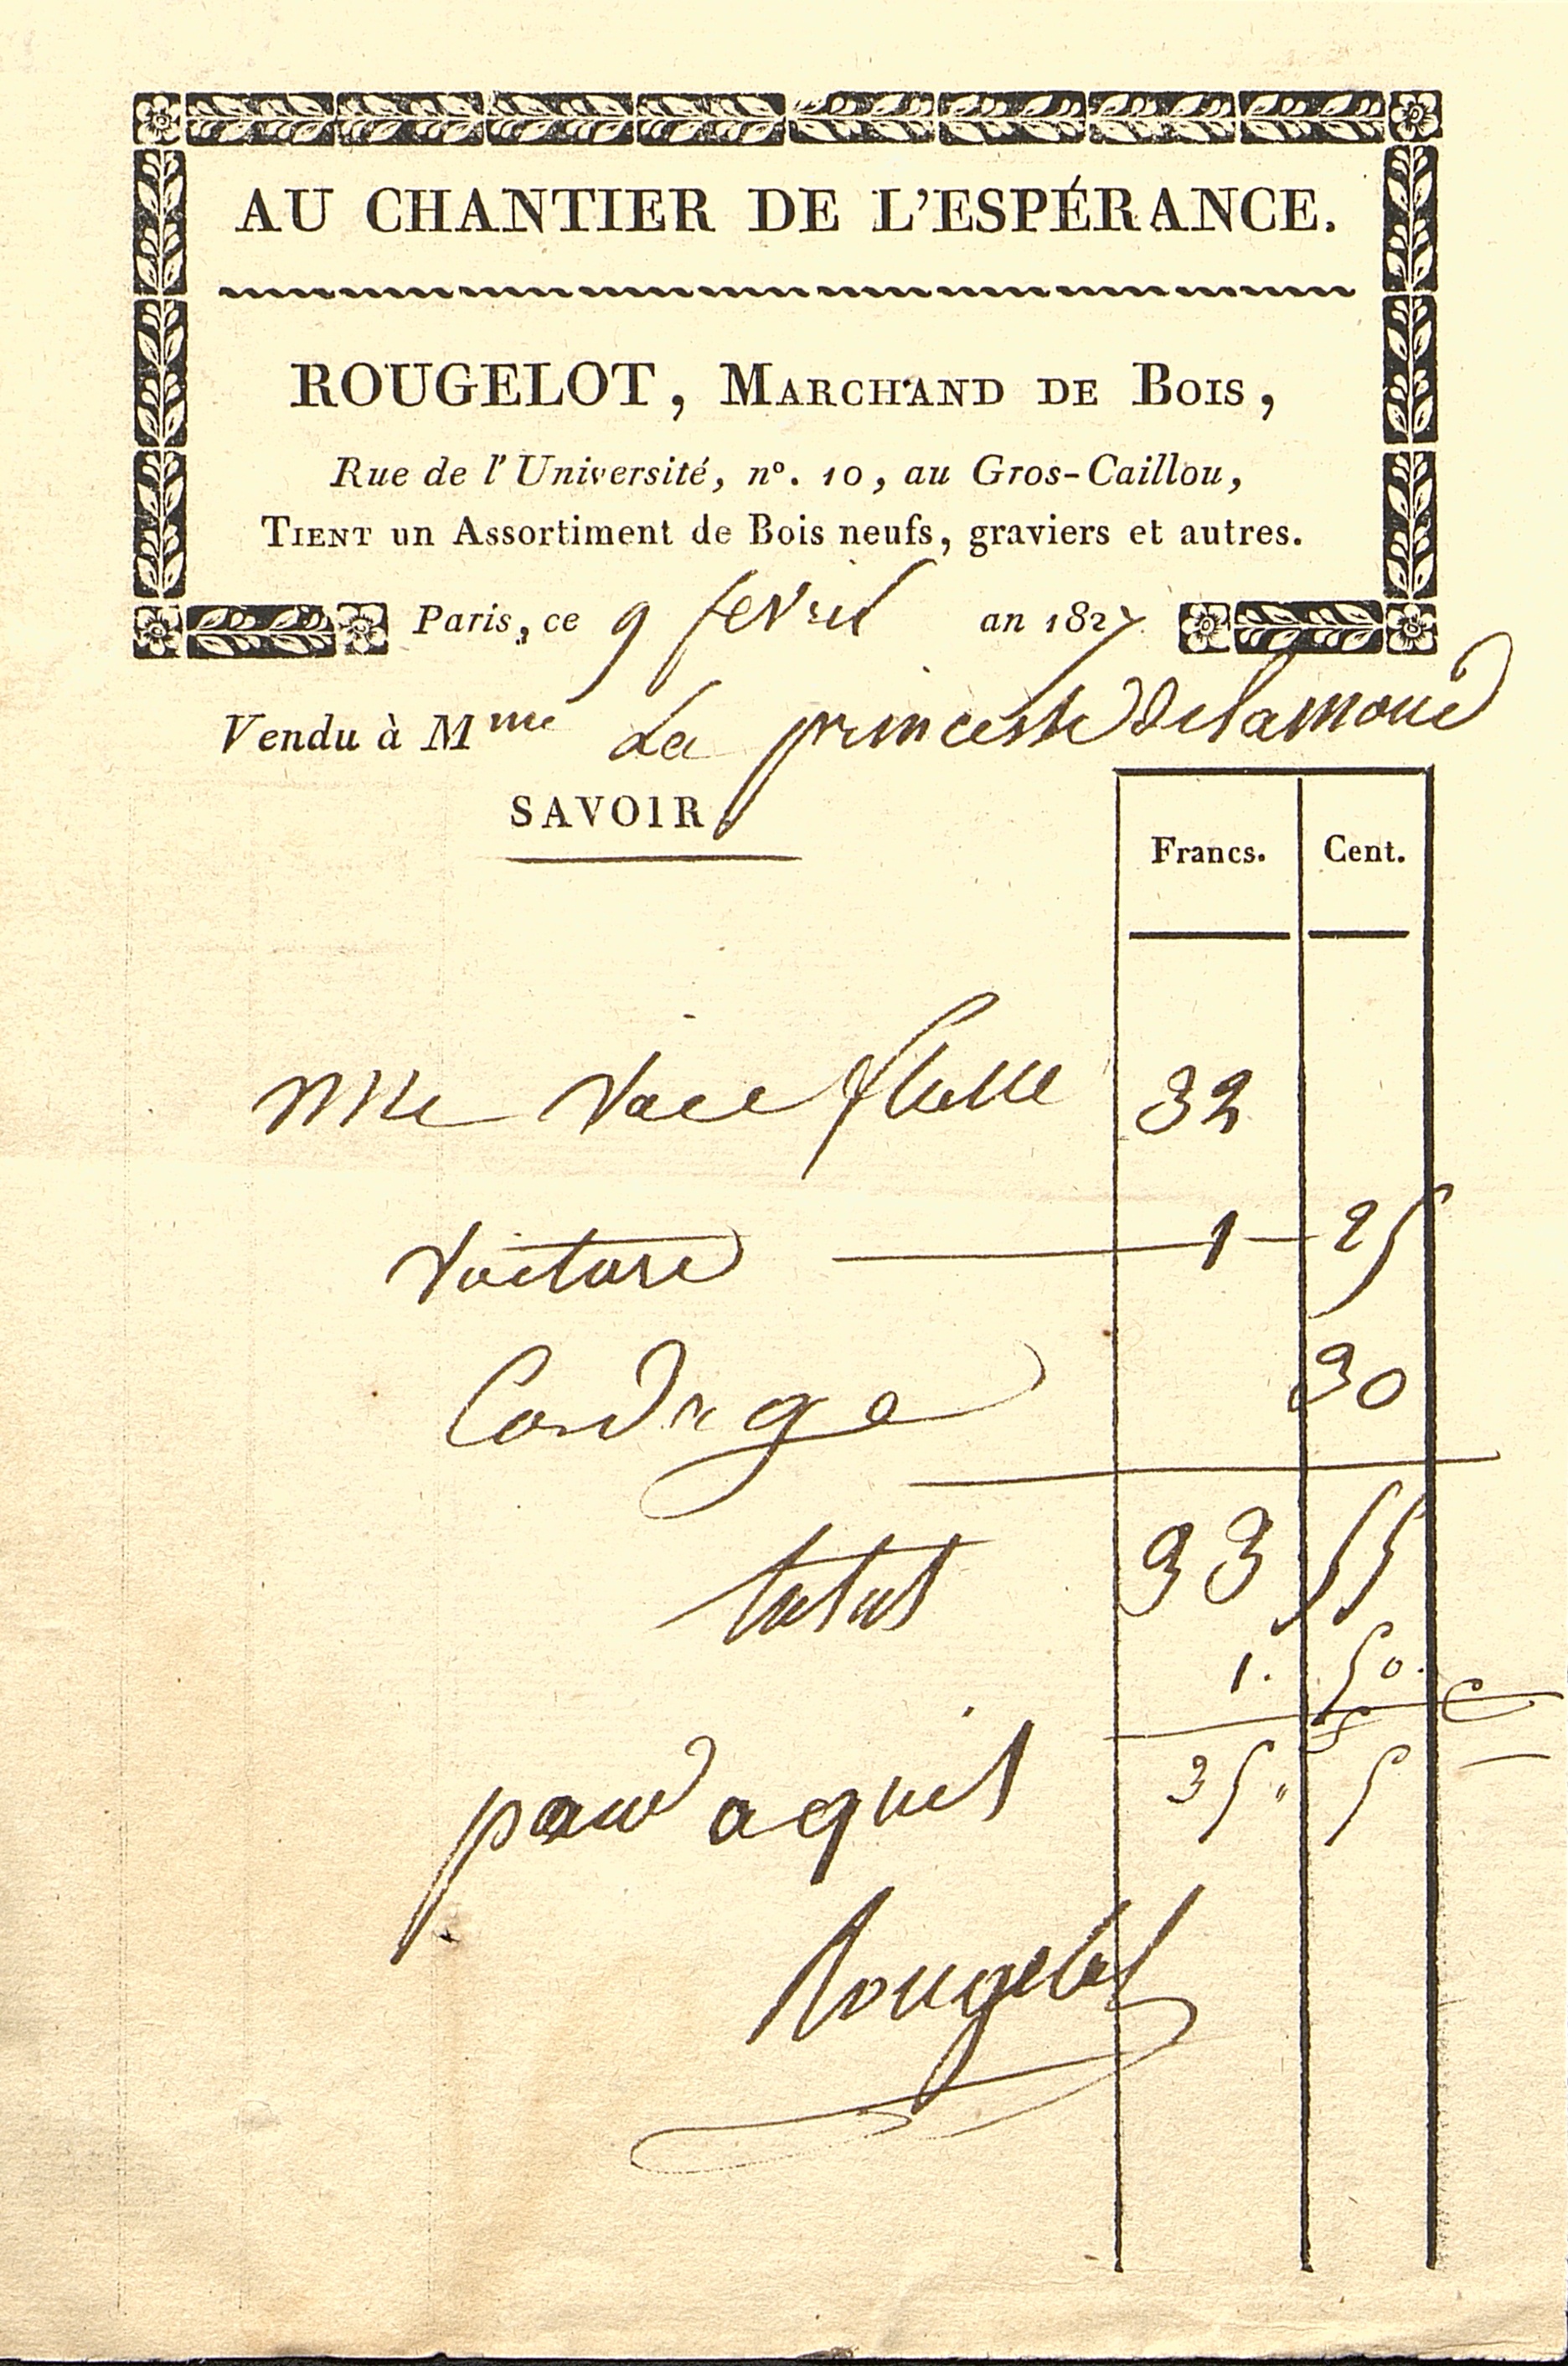 AU CHANTIER DE L'ESPÉRANCE.
ROUGELOT, MARCHAND DE BOIS,
Rue de l'Université, nº. 10, au Gros-Caillou,
TIENT un Assortiment de Bois neufs, graviers et autres.
Paris, ce 9 fevril an 1827
Vendu à Mme La princesse
SAVOIR
Francs. Cent.
voie 32
voiture 1 25
Cordage 30
total 33 55
1. 50.
pour aquit 35 5
Rougelot